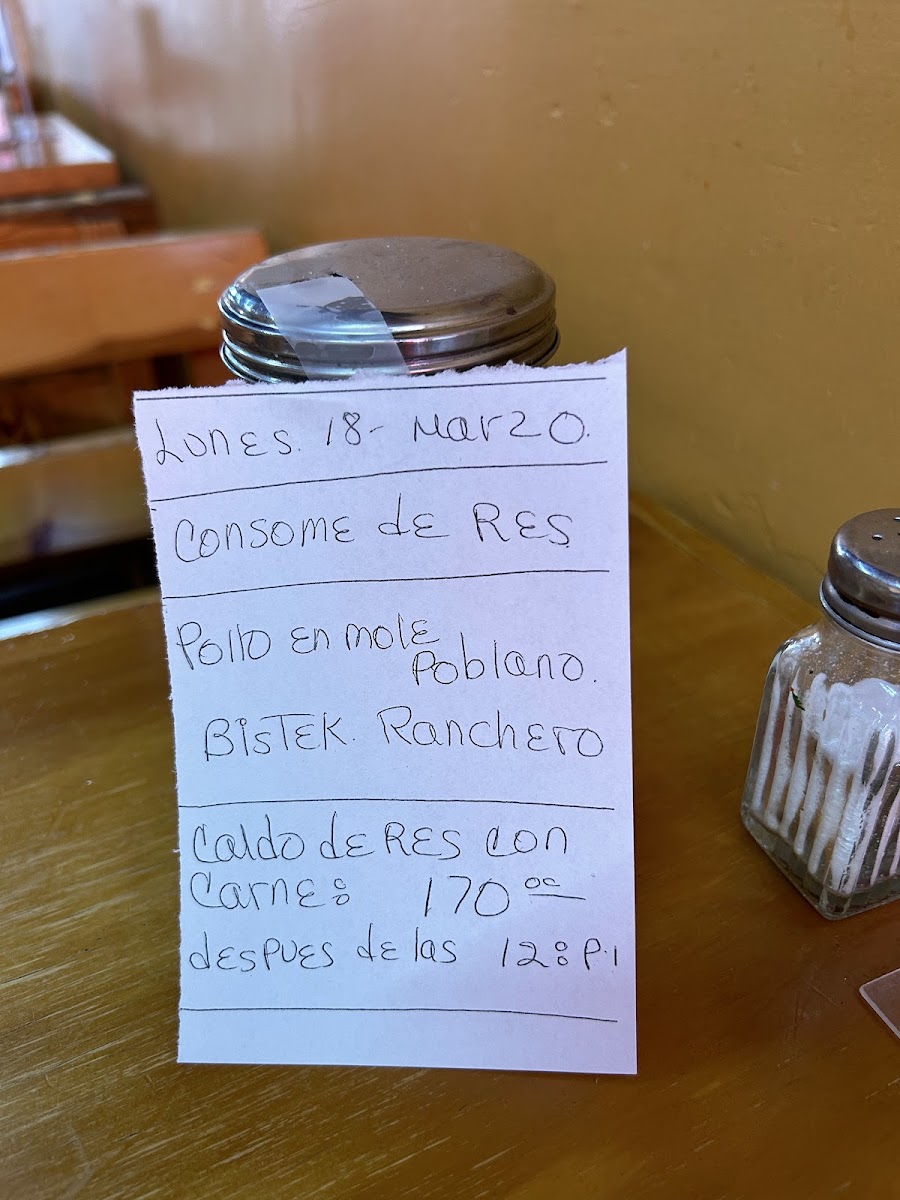 Lunes. 18- Marzo.
Consome de Res
Pollo en mole
Poblano.
Bistek. Ranchero
Caldo de Res con
Carne: 170.00
despues de las 12: P.